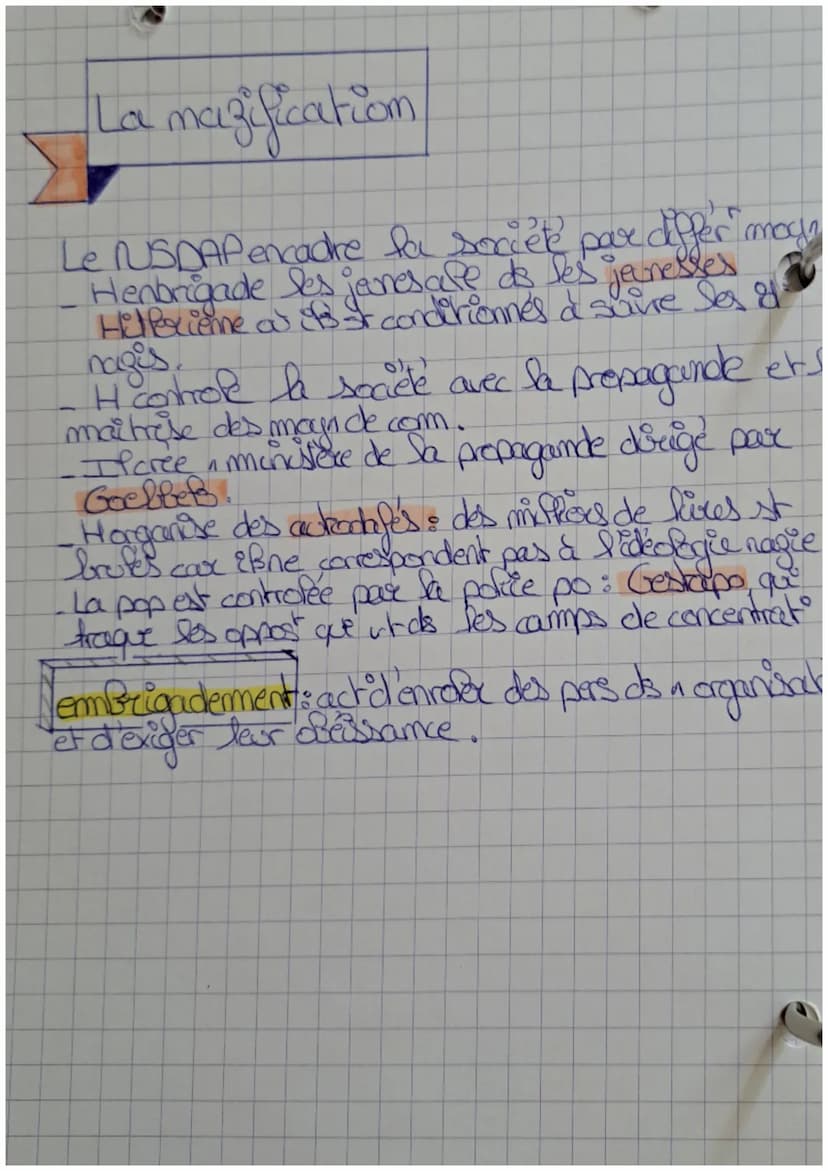 La nazification
Le NSDAP encadre la société par différ^nt moy
- Il enbrigade les jeunes alle ds les jeunesses
Hitlérienne où ils st conditionnés à suivre les
nazis.
- Il contrôle la société avec la propagande et s
maîtrise des moy de com.
- Il crée 1 ministère de la propagande dirigé par
Goelbels.
- Il organise des autodafés : des milliers de livres st
brulés car ils ne correspondent pas à l'idéologie nazie
- La pop est controlée par la police po : Gestapo, qui
traque les oppost que vt ds les camps de concentrat°
embrigadement : act° d'enroler des pers ds 1 organisat
et d'exiger leur obéissance.